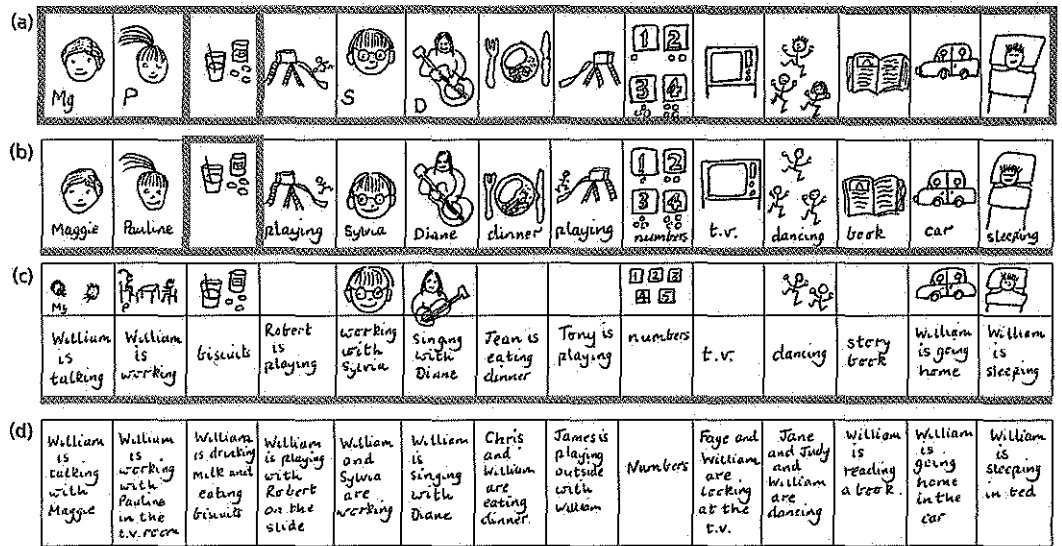 (a)
Mg
P
S
D
1 2
3 4
(b)
Maggie
Pauline
playing
Sylvia
Diane
dinner
playing
1 2
3 4
numbers
t.v.
dancing
book
car
sleeping
(c)
Mg
P
1 2 3
4 5
William
is
talking
William
is
working
biscuits
Robert
is
playing
working
with
Sylvia
Singing
with
Diane
Jean is
eating
dinner
Tony is
playing
numbers
t.v.
dancing
story
book
William
is going
home
William
is
sleeping
(d)
William
is
talking
with
Maggie
William
is
working
with
Pauline
in the
t.v. room
William
is drinking
milk and
eating
biscuits
William
is playing
with
Robert
on the
slide
William
and
Sylvia
are
working
William
is
singing
with
Diane
Chris
and
William
are
eating
dinner.
James is
playing
outside
with
William
Numbers
Faye and
William
are
looking
at the
t.v.
Jane
and Judy
and
William
are
dancing
William
is
reading
a book.
William
is
going
home
in the
car
William
is
sleeping
in bed